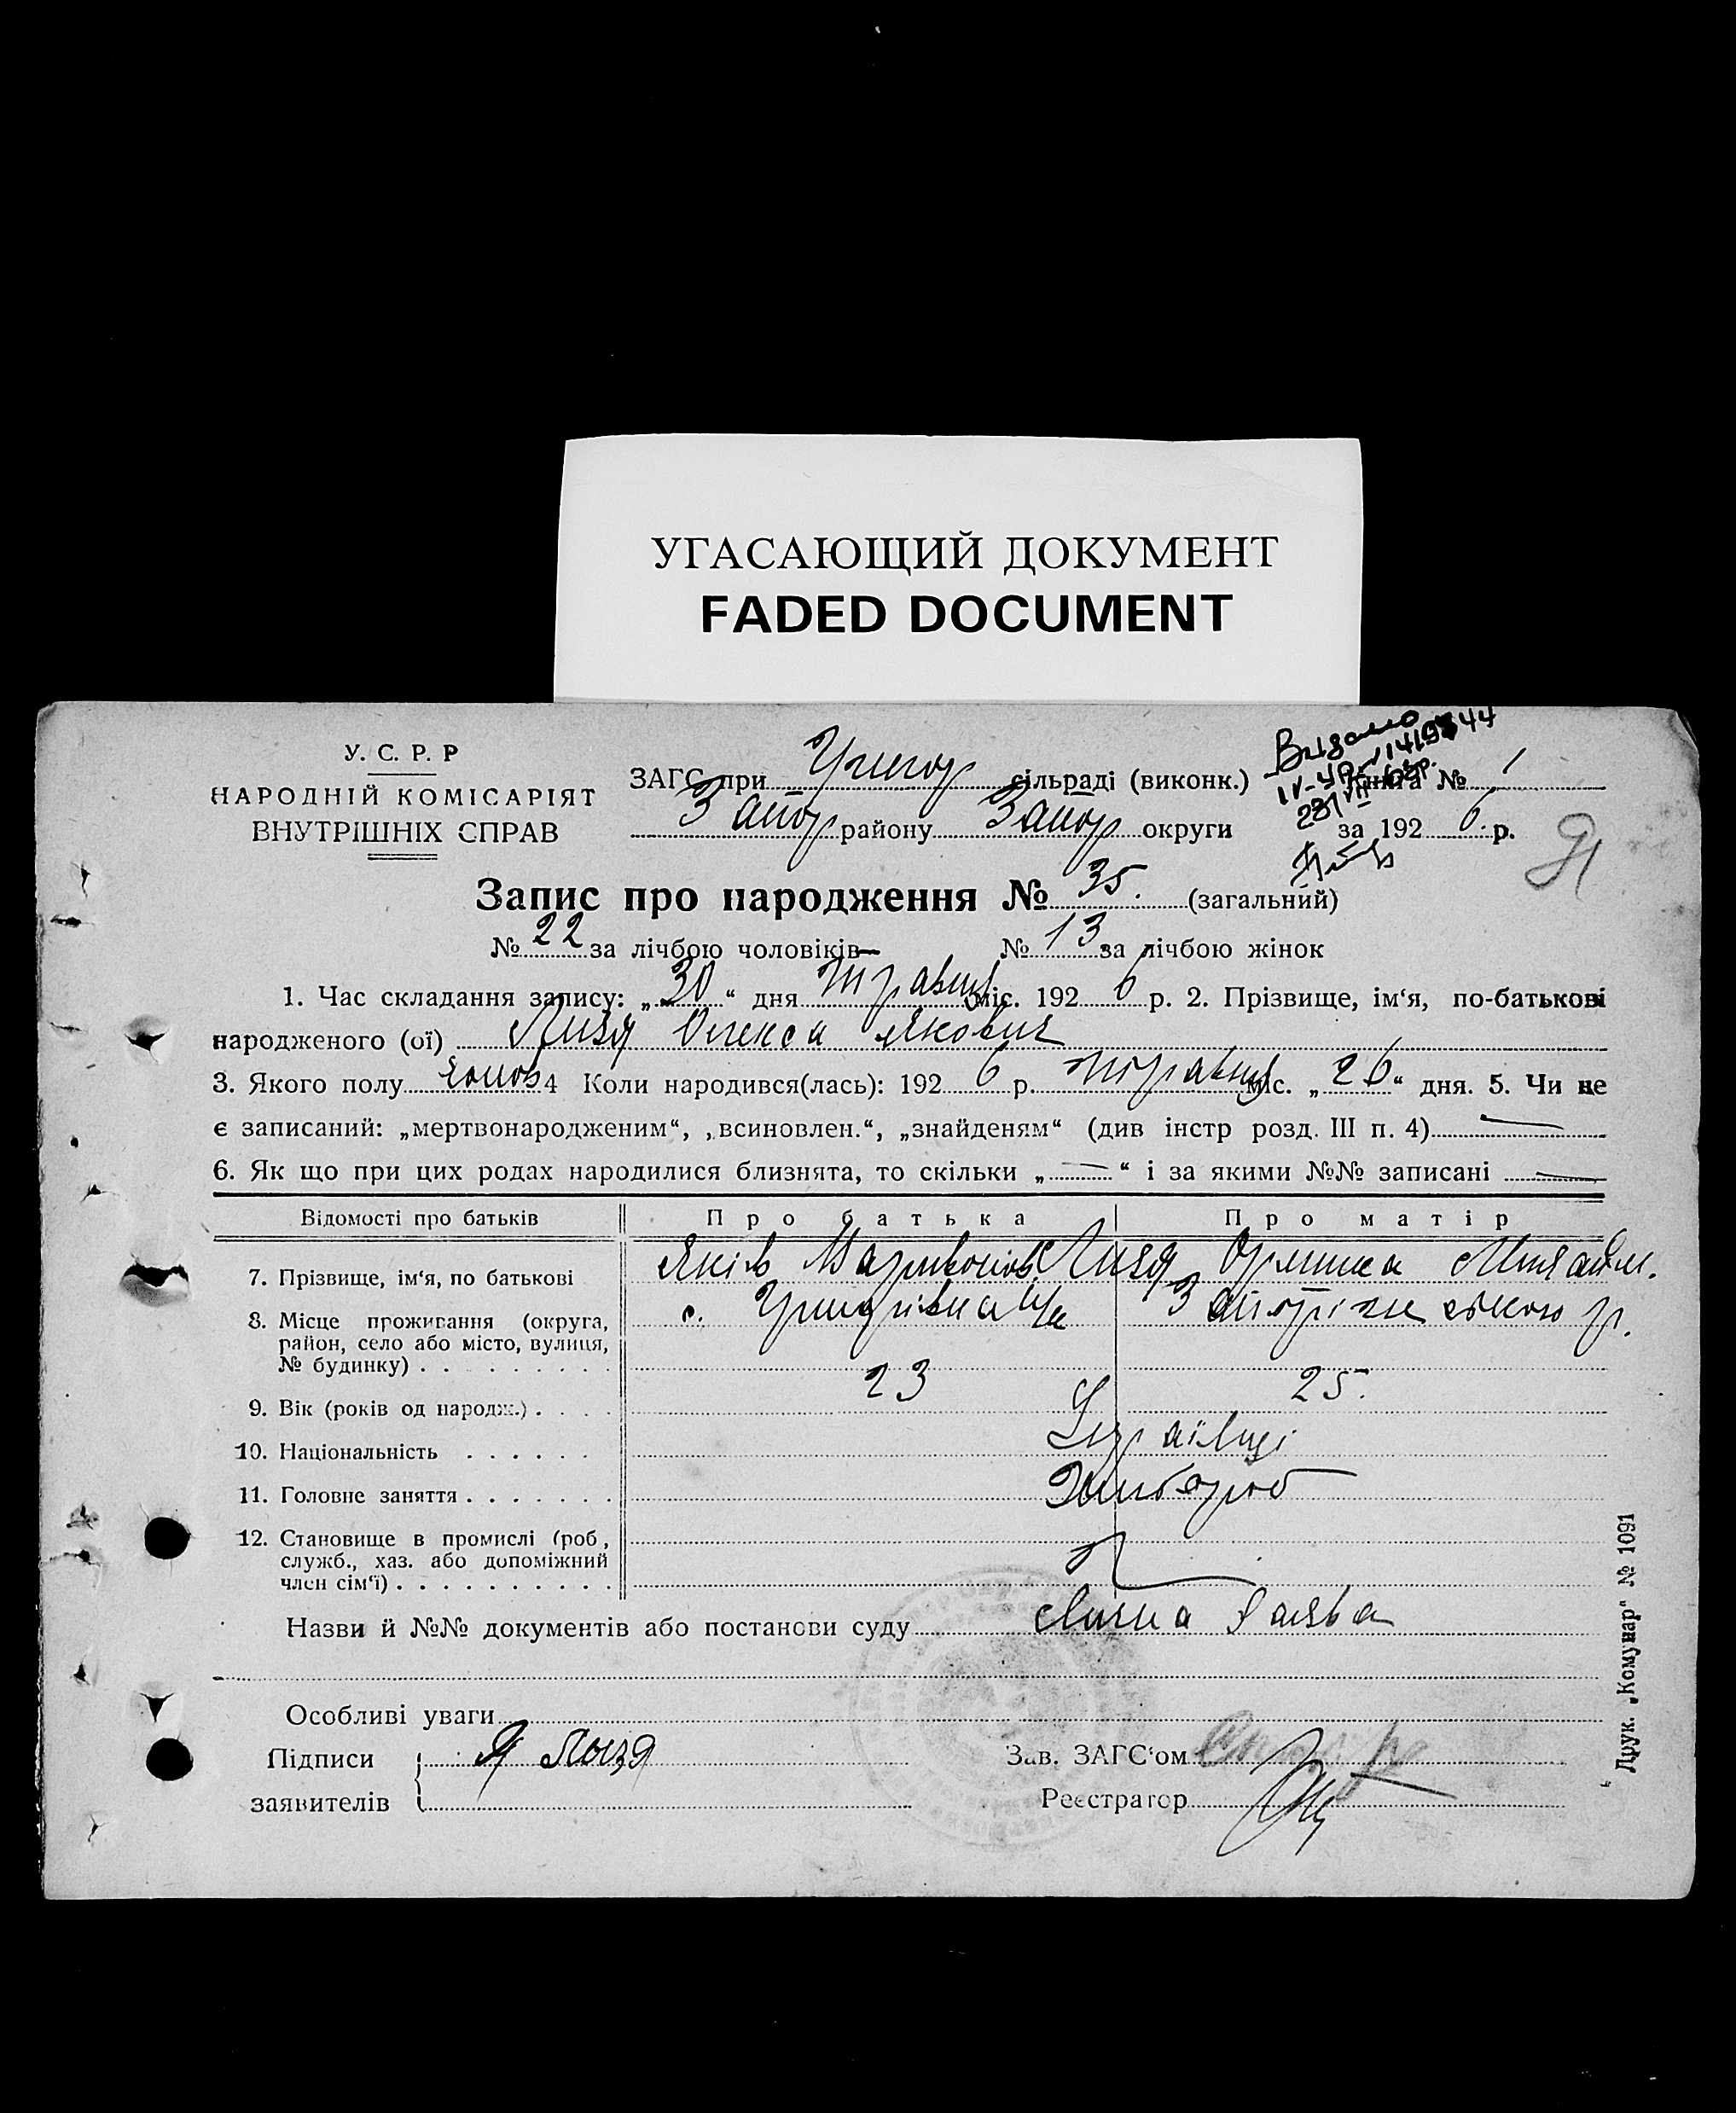 УГАСАЮЩИЙ ДОКУМЕНТ
FADED DOCUMENT
У. С. Р. Р
НАРОДНІЙ КОМІСАРІЯТ
ВНУТРІШНІХ СПРАВ
ЗАГС при Григор сільраді (виконк.) Книга № 1
Запор району Запор округи за 1926 р.
Видано
91
Запис про народження № 35. (загальний)
№ 22 за лічбою чоловіків— № 13 за лічбою жінок
1. Час складання запису: „30“ дня травня міс. 1926 р. 2. Прізвище, ім‘я, по-батькові
народженого (ої) Лизя Олекса Якович
3. Якого полу чолов 4 Коли народився(лась): 1926 р. травня міс. „26“ дня. 5. Чи не
є записаний: „мертвонародженим“, „всиновлен.“, „знайденям“ (див інстр розд. III п. 4) —
6. Як що при цих родах народилися близнята, то скільки „—“ і за якими №№ записані —
Відомості про батьків Про батька Про матір
7. Прізвище, ім‘я, по батькові Яків Лизя
8. Місце проживання (округа, с. Григорівка Запоріжського р.
район, село або місто, вулиця,
№ будинку) . . . . . . . . .
9. Вік (років од народж.) . . . . 23 25.
10. Національність . . . . . . Українці
11. Головне заняття . . . . . . . Хлібороб
12. Становище в промислі (роб,
служб., хаз. або допоміжний
член сім‘ї) . . . . . . . . . .
Назви й №№ документів або постанови суду Лична заява
Особливі уваги
Підписи Я Лызя Зав. ЗАГС‘ом
заявителів Реєстратор
Друк. „Комунар“ № 1091